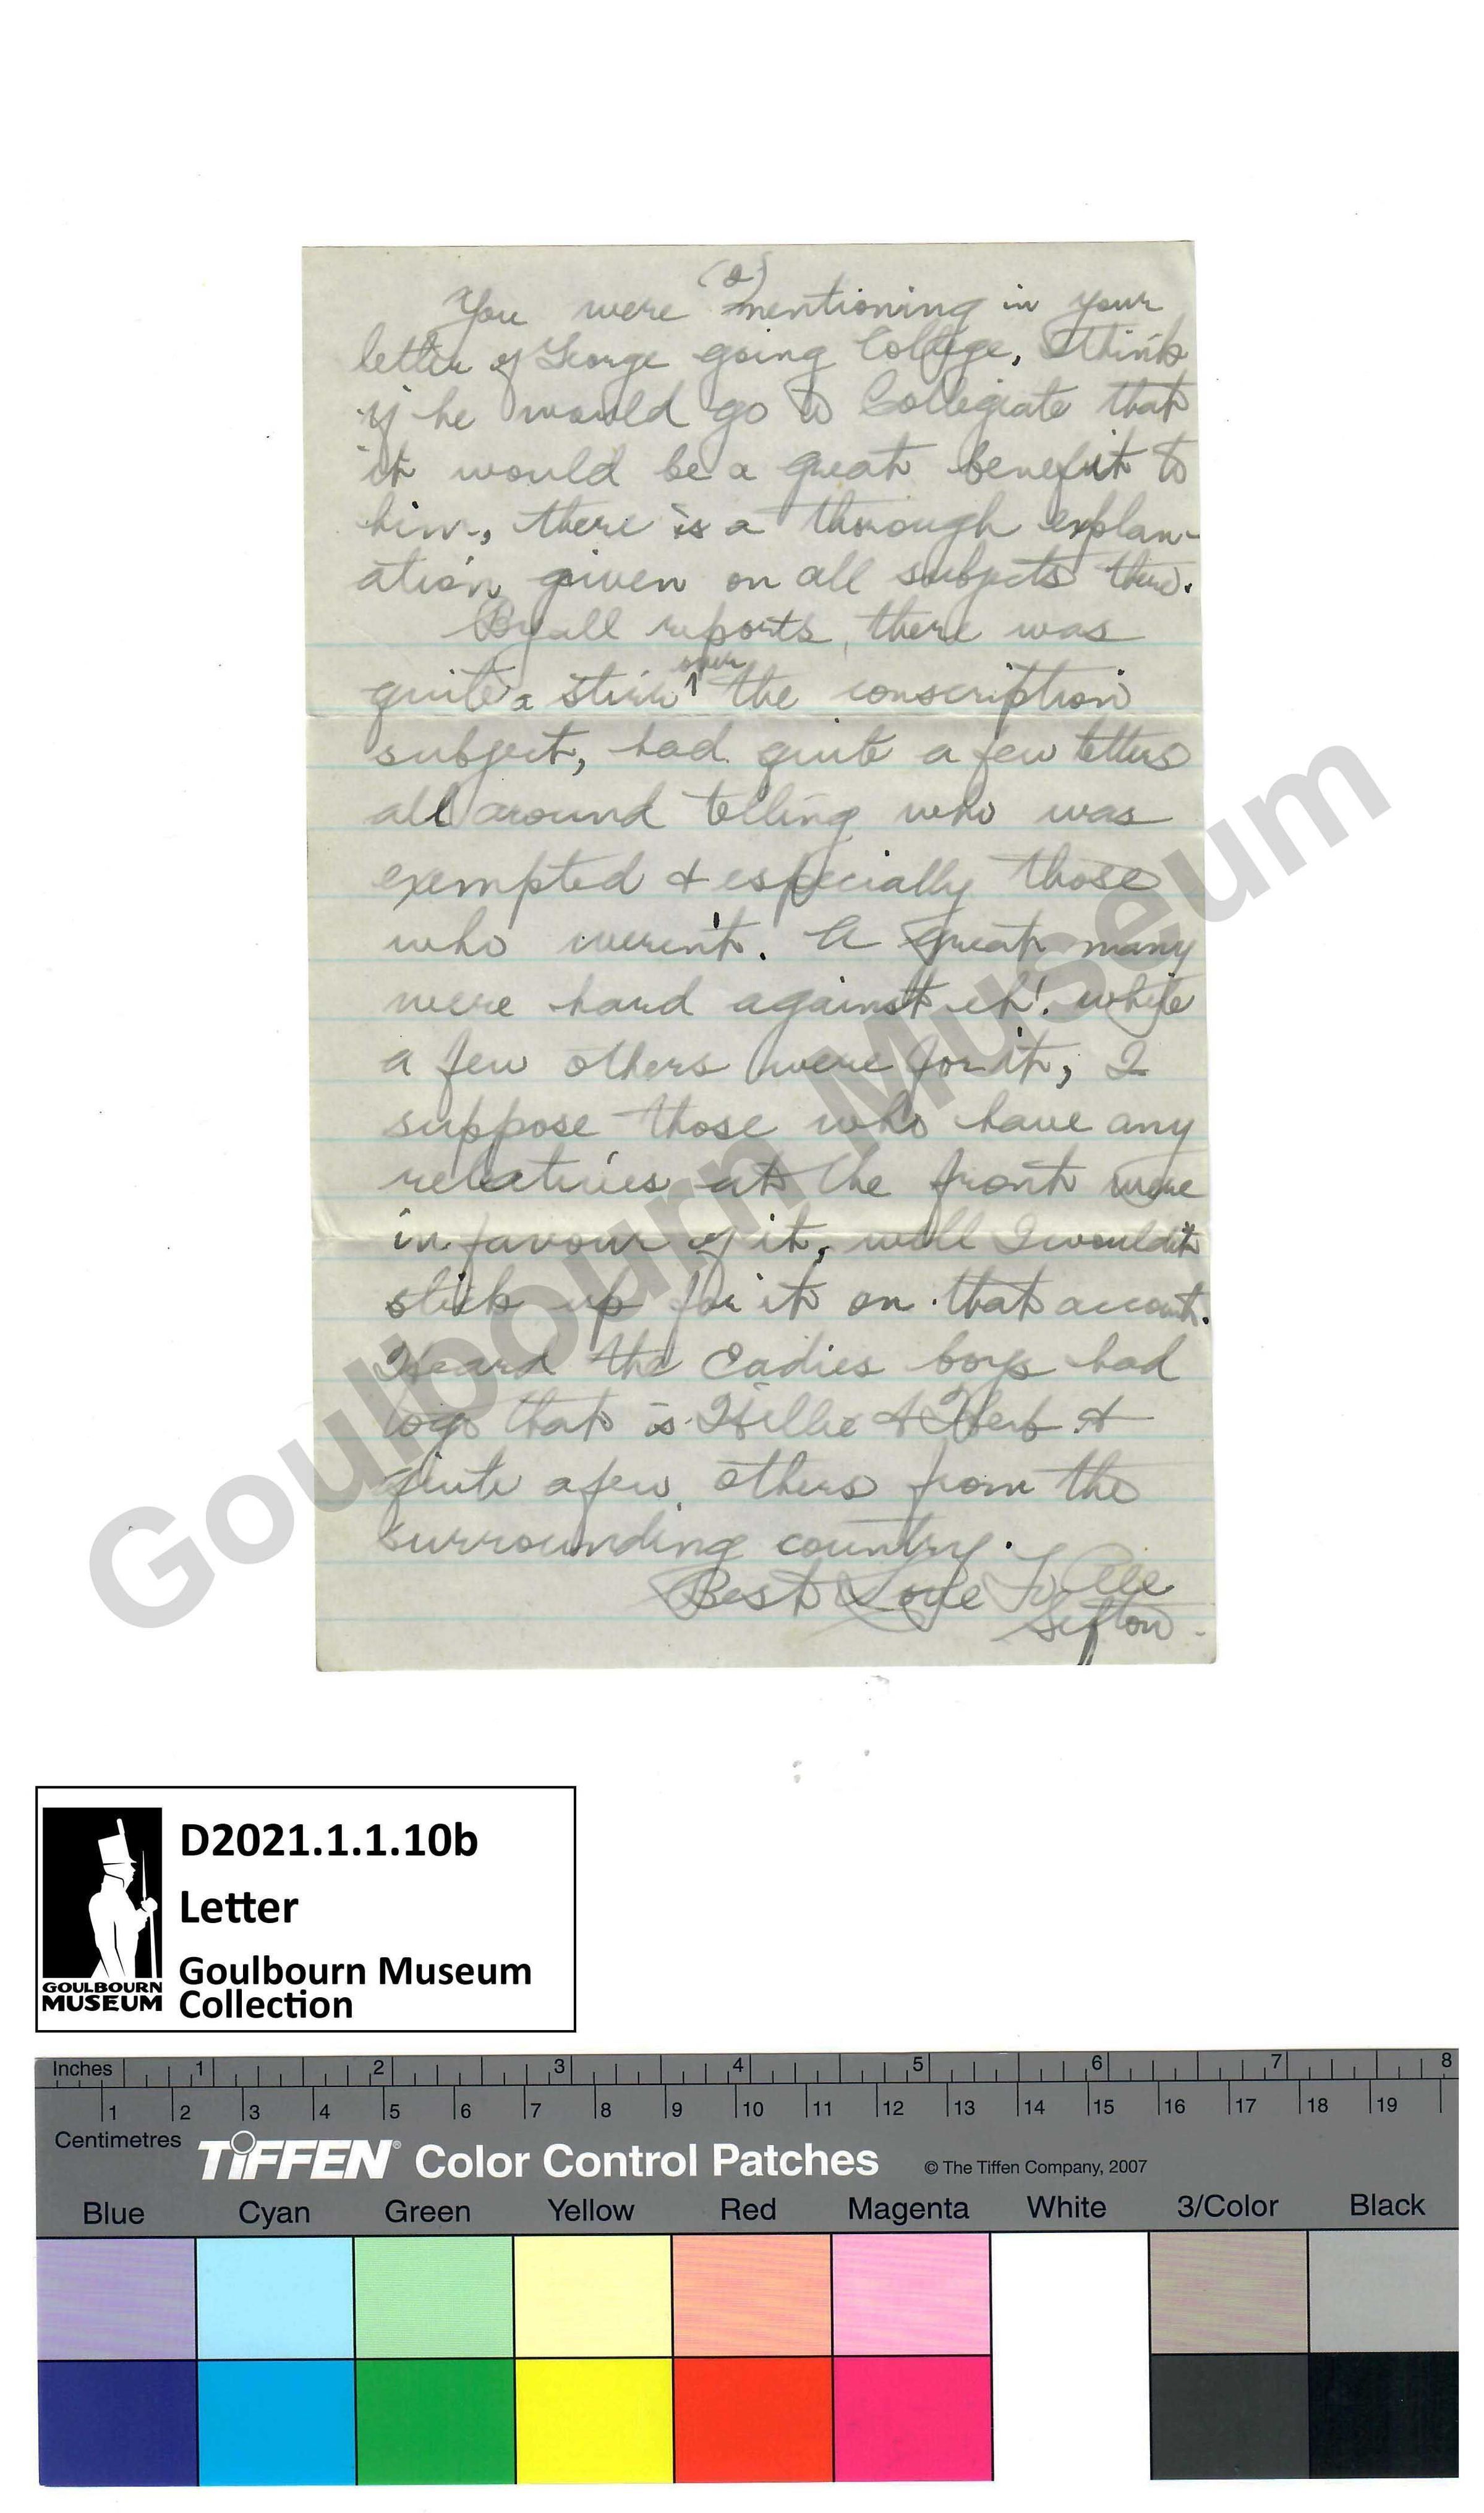 (2)
You were mentioning in your
letter of George going College, I think
if he would go to Collegiate that
it would be a great benefit to
him, there is a through explan-
ation given on all subjects there.
By all reports, there was
quite a stirr over the conscription
subject, had quite a few letters
all around telling who was
exempted & especially those
who weren't. A great many
were hard against it! while
a few others were for it, I
suppose those who have any
relatives at the front were
in favour of it, well I wouldn't
stick up for it on that account.
Heard the Eadies boys had
to go that is Willie & Herb &
quite a few others from the
surrounding country.
Best Love To All
Sefton.
Goulbourn Museum
D2021.1.1.10b
Letter
Goulbourn Museum
Collection
GOULBOURN
MUSEUM
Inches 1 2 3 4 5 6 7 8
1 2 3 4 5 6 7 8 9 10 11 12 13 14 15 16 17 18 19
Centimetres
TIFFEN® Color Control Patches © The Tiffen Company, 2007
Blue Cyan Green Yellow Red Magenta White 3/Color Black